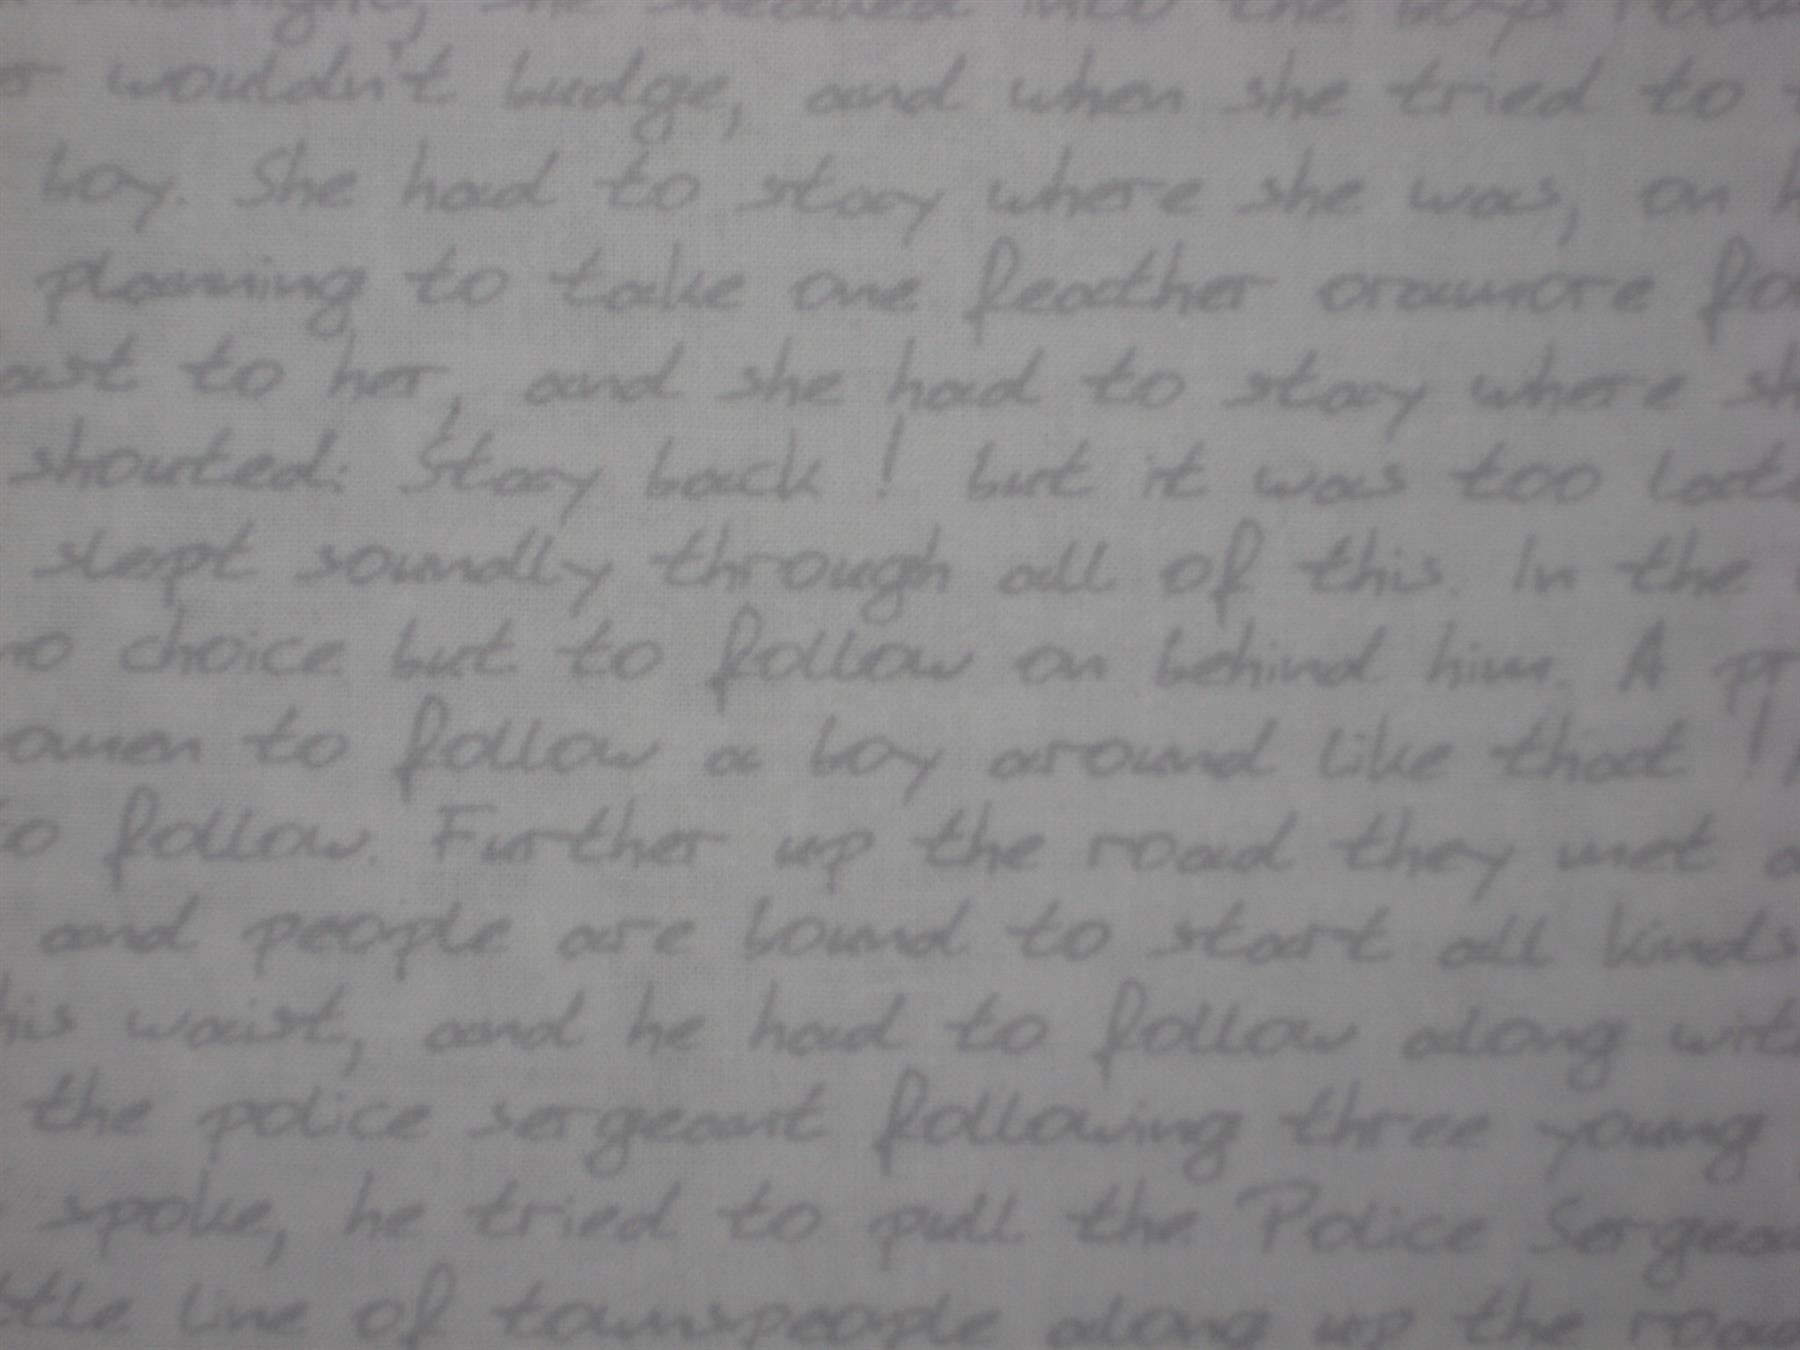 she sneaked into the boys room
wouldn't budge, and when she tried to
boy. She had to stay where she was, on
planning to take one feather or more
to her, and she had to stay where
shouted: Stay back! but it was too late
slept soundly through all of this. In the
no choice but to follow on behind him. A
to follow a boy around like that!
to follow. Further up the road they met
and people are bound to start all kinds
his waist, and he had to follow along with
the police sergeant following three young
spoke, he tried to pull the Police Sergea
line of townspeople along up the road